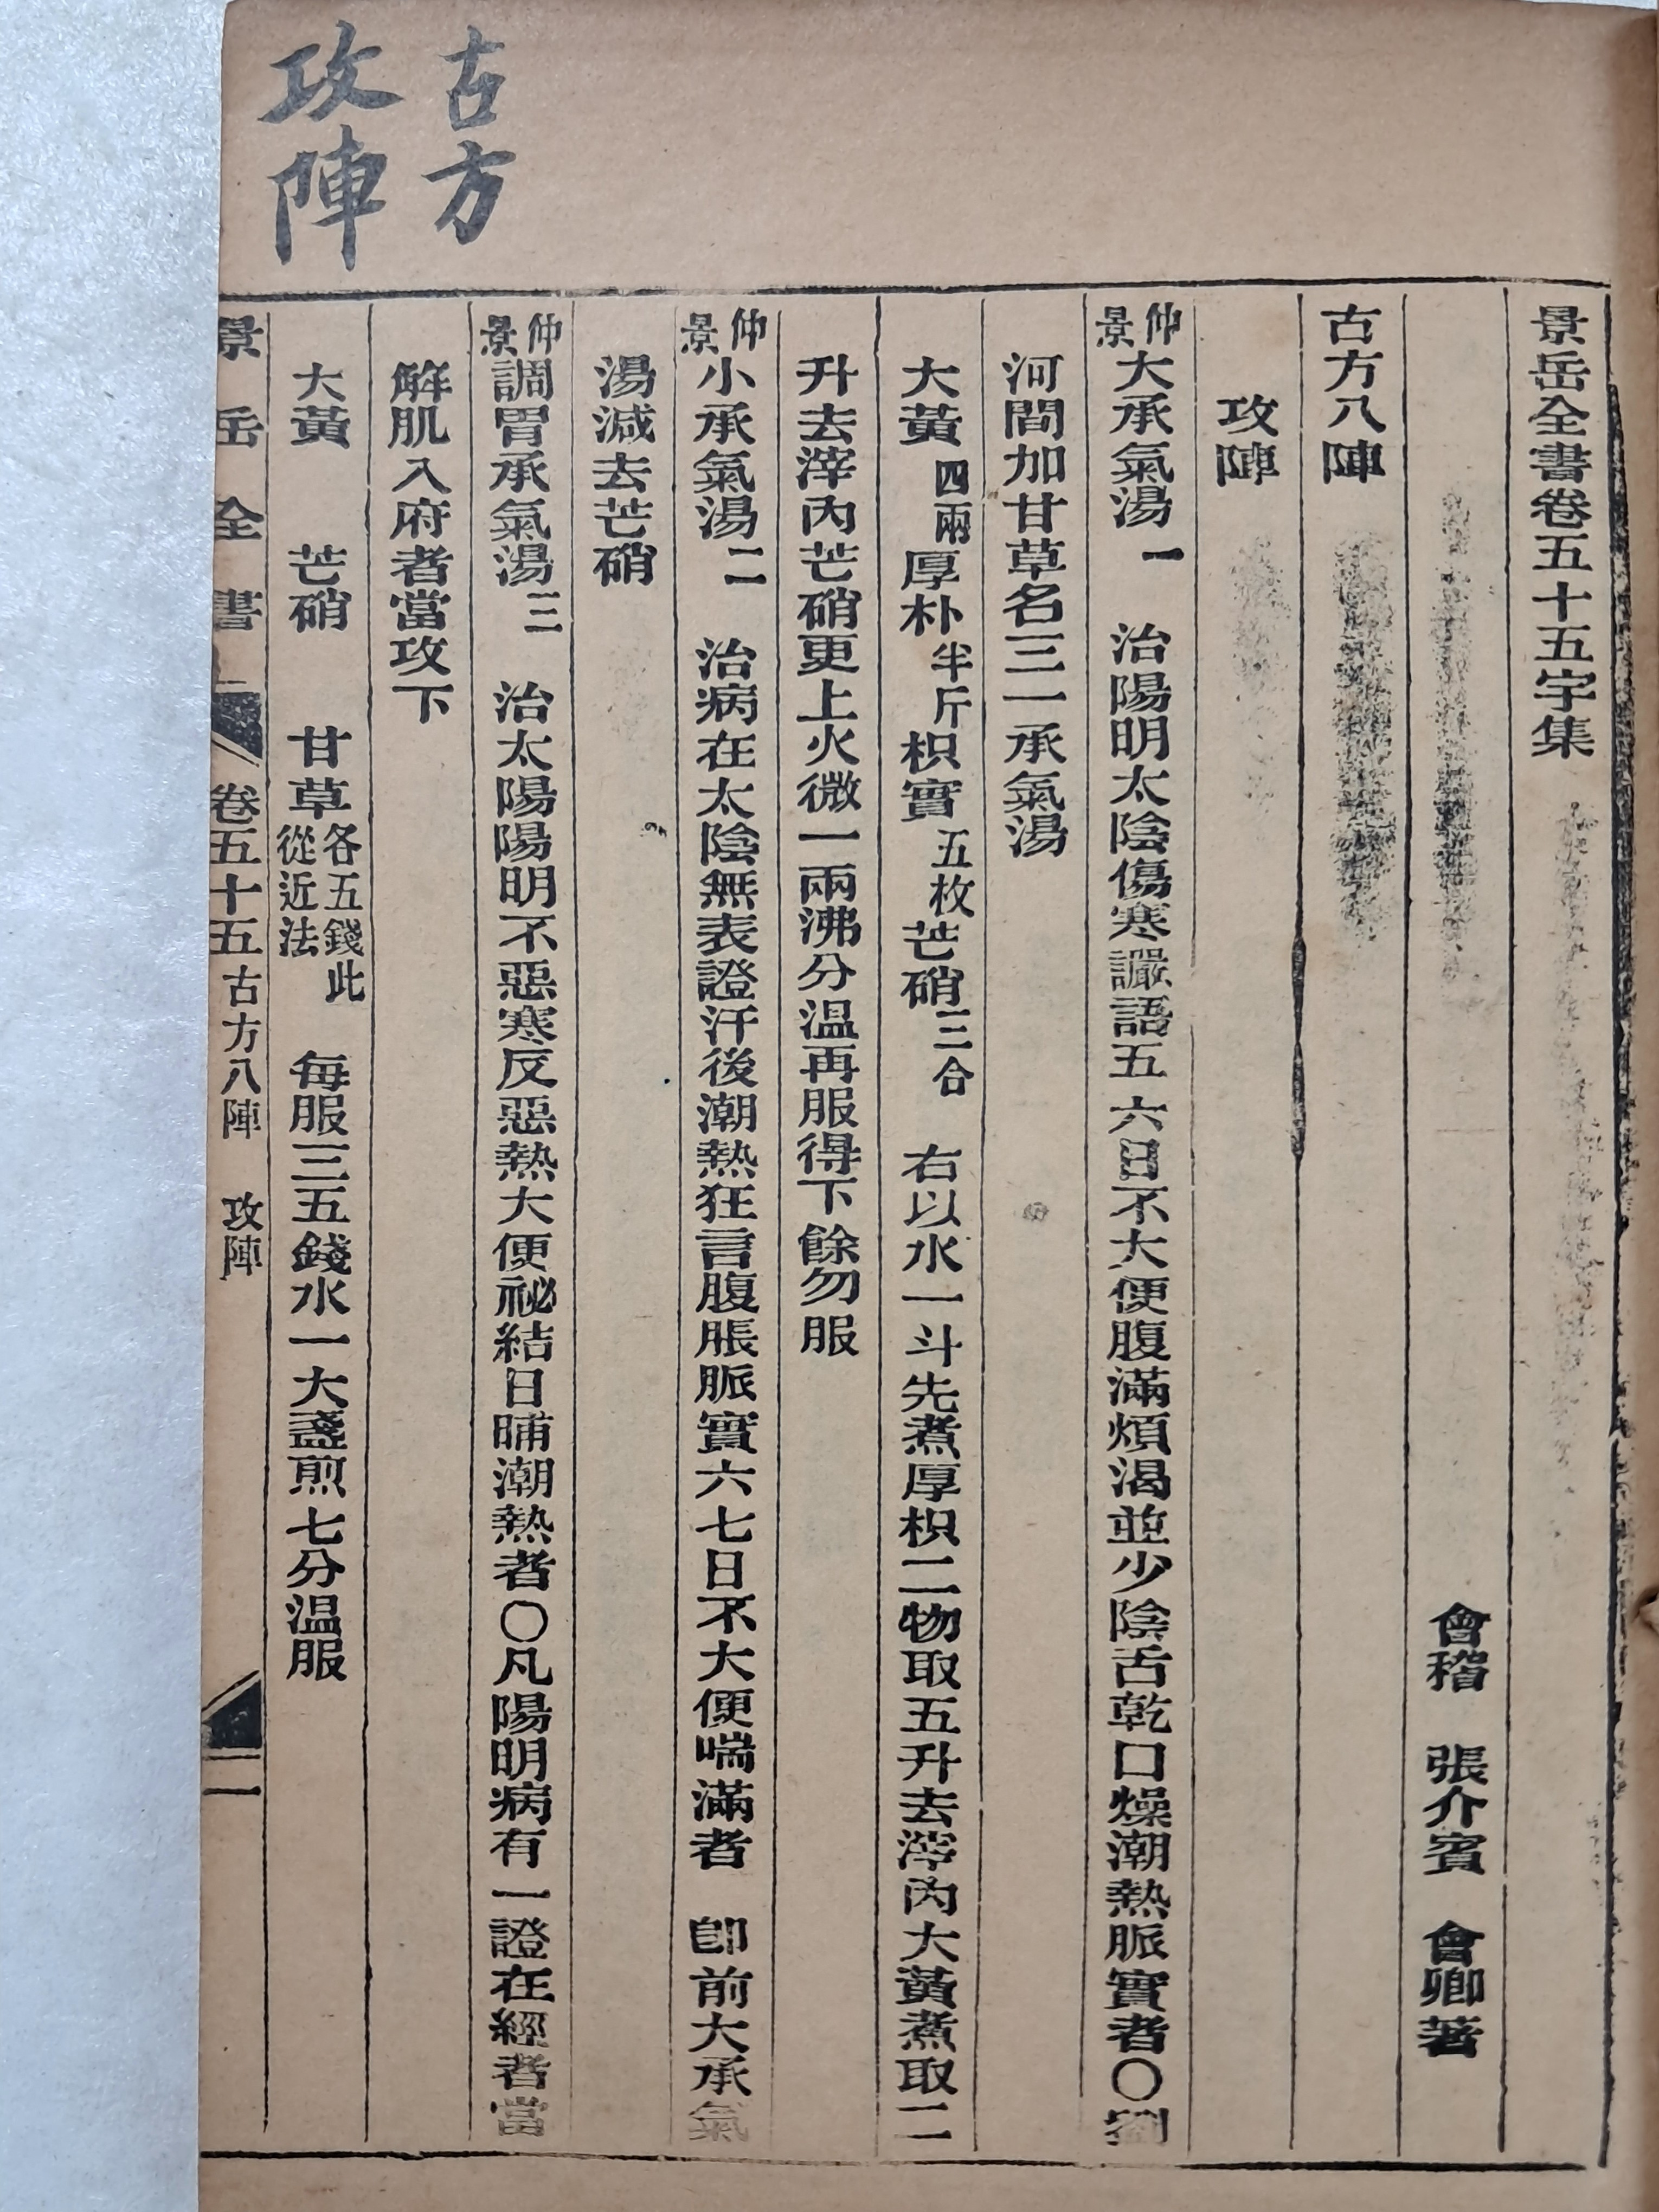 古方
攻陣
景岳全書卷五十五宇集
會稽 張介賓 會卿著
古方八陣
攻陣
仲景大承氣湯一 治陽明太陰傷寒讝語五六日不大便腹滿煩渴並少陰舌乾口燥潮熱脈實者〇劉
河間加甘草名三一承氣湯
大黃四兩厚朴半斤枳實五枚芒硝三合 右以水一斗先煮厚枳二物取五升去滓內大黃煮取二
升去滓內芒硝更上火微一兩沸分温再服得下餘勿服
仲景小承氣湯二 治病在太陰無表證汗後潮熱狂言腹脹脈實六七日不大便喘滿者 卽前大承氣
湯減去芒硝
仲景調胃承氣湯三 治太陽陽明不惡寒反惡熱大便祕結日晡潮熱者〇凡陽明病有一證在經者當
解肌入府者當攻下
大黃 芒硝 甘草各五錢此從近法 每服三五錢水一大盞煎七分温服
景岳全書 卷五十五古方八陣 攻陣 一